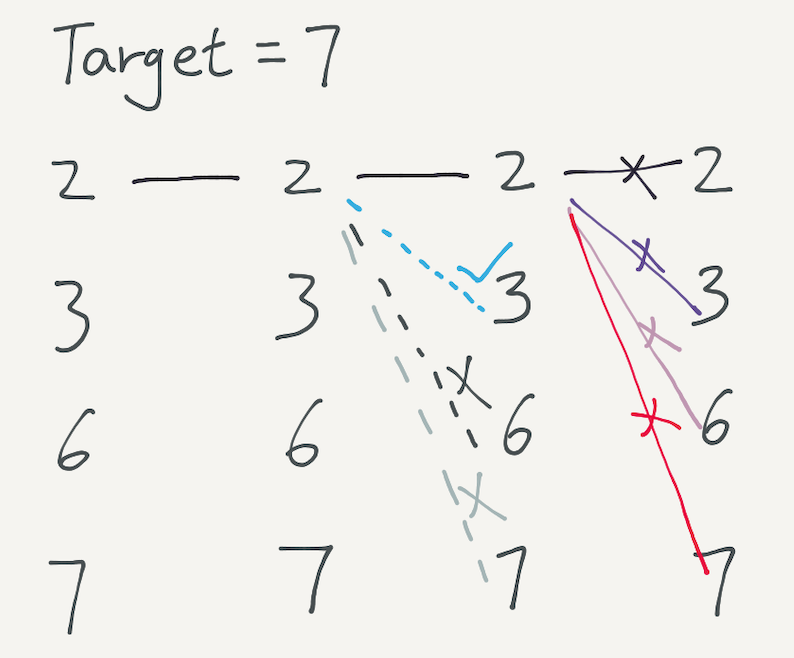 Target = 7
2 2 2 2
3 3 3 3
6 6 6 6
7 7 7 7